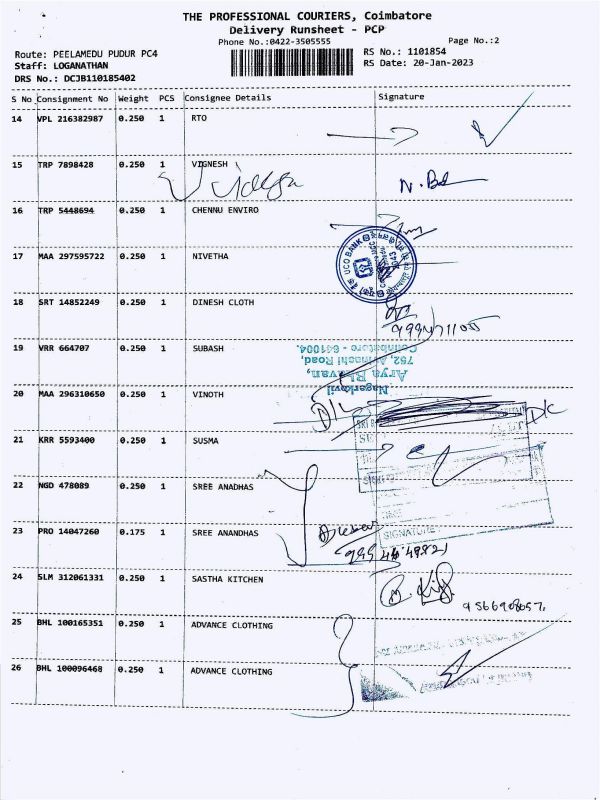 THE PROFESSIONAL COURIERS, Coimbatore
Delivery Runsheet - PCP
Phone No.:0422-3505555
Page No.:2
Route: PEELAMEDU PUDUR PC4
RS No.: 1101854
Staff: LOGANATHAN
RS Date: 20-Jan-2023
DRS No.: DCJB110185402
S No Consignment No Weight PCS Consignee Details Signature
14 VPL 216382987 0.250 1 RTO
15 TRP 7898428 0.250 1 VIGNESH
N. Bal
16 TRP 5448694 0.250 1 CHENNU ENVIRO
UCO BANK
17 MAA 297595722 0.250 1 NIVETHA
18 SRT 14852249 0.250 1 DINESH CLOTH
19 VRR 664707 0.250 1 SUBASH
Nagerkovil
Arya Bhavan,
752, Avinachi Road,
Coimbatore - 641004.
20 MAA 296310650 0.250 1 VINOTH
D/C
D/C
21 KRR 5593400 0.250 1 SUSMA
22 NGD 478089 0.250 1 SREE ANADHAS
23 PRO 14047260 0.175 1 SREE ANANDHAS
SIGNATURE
24 SLM 312061331 0.250 1 SASTHA KITCHEN
25 BHL 100165351 0.250 1 ADVANCE CLOTHING
26 BHL 100096468 0.250 1 ADVANCE CLOTHING